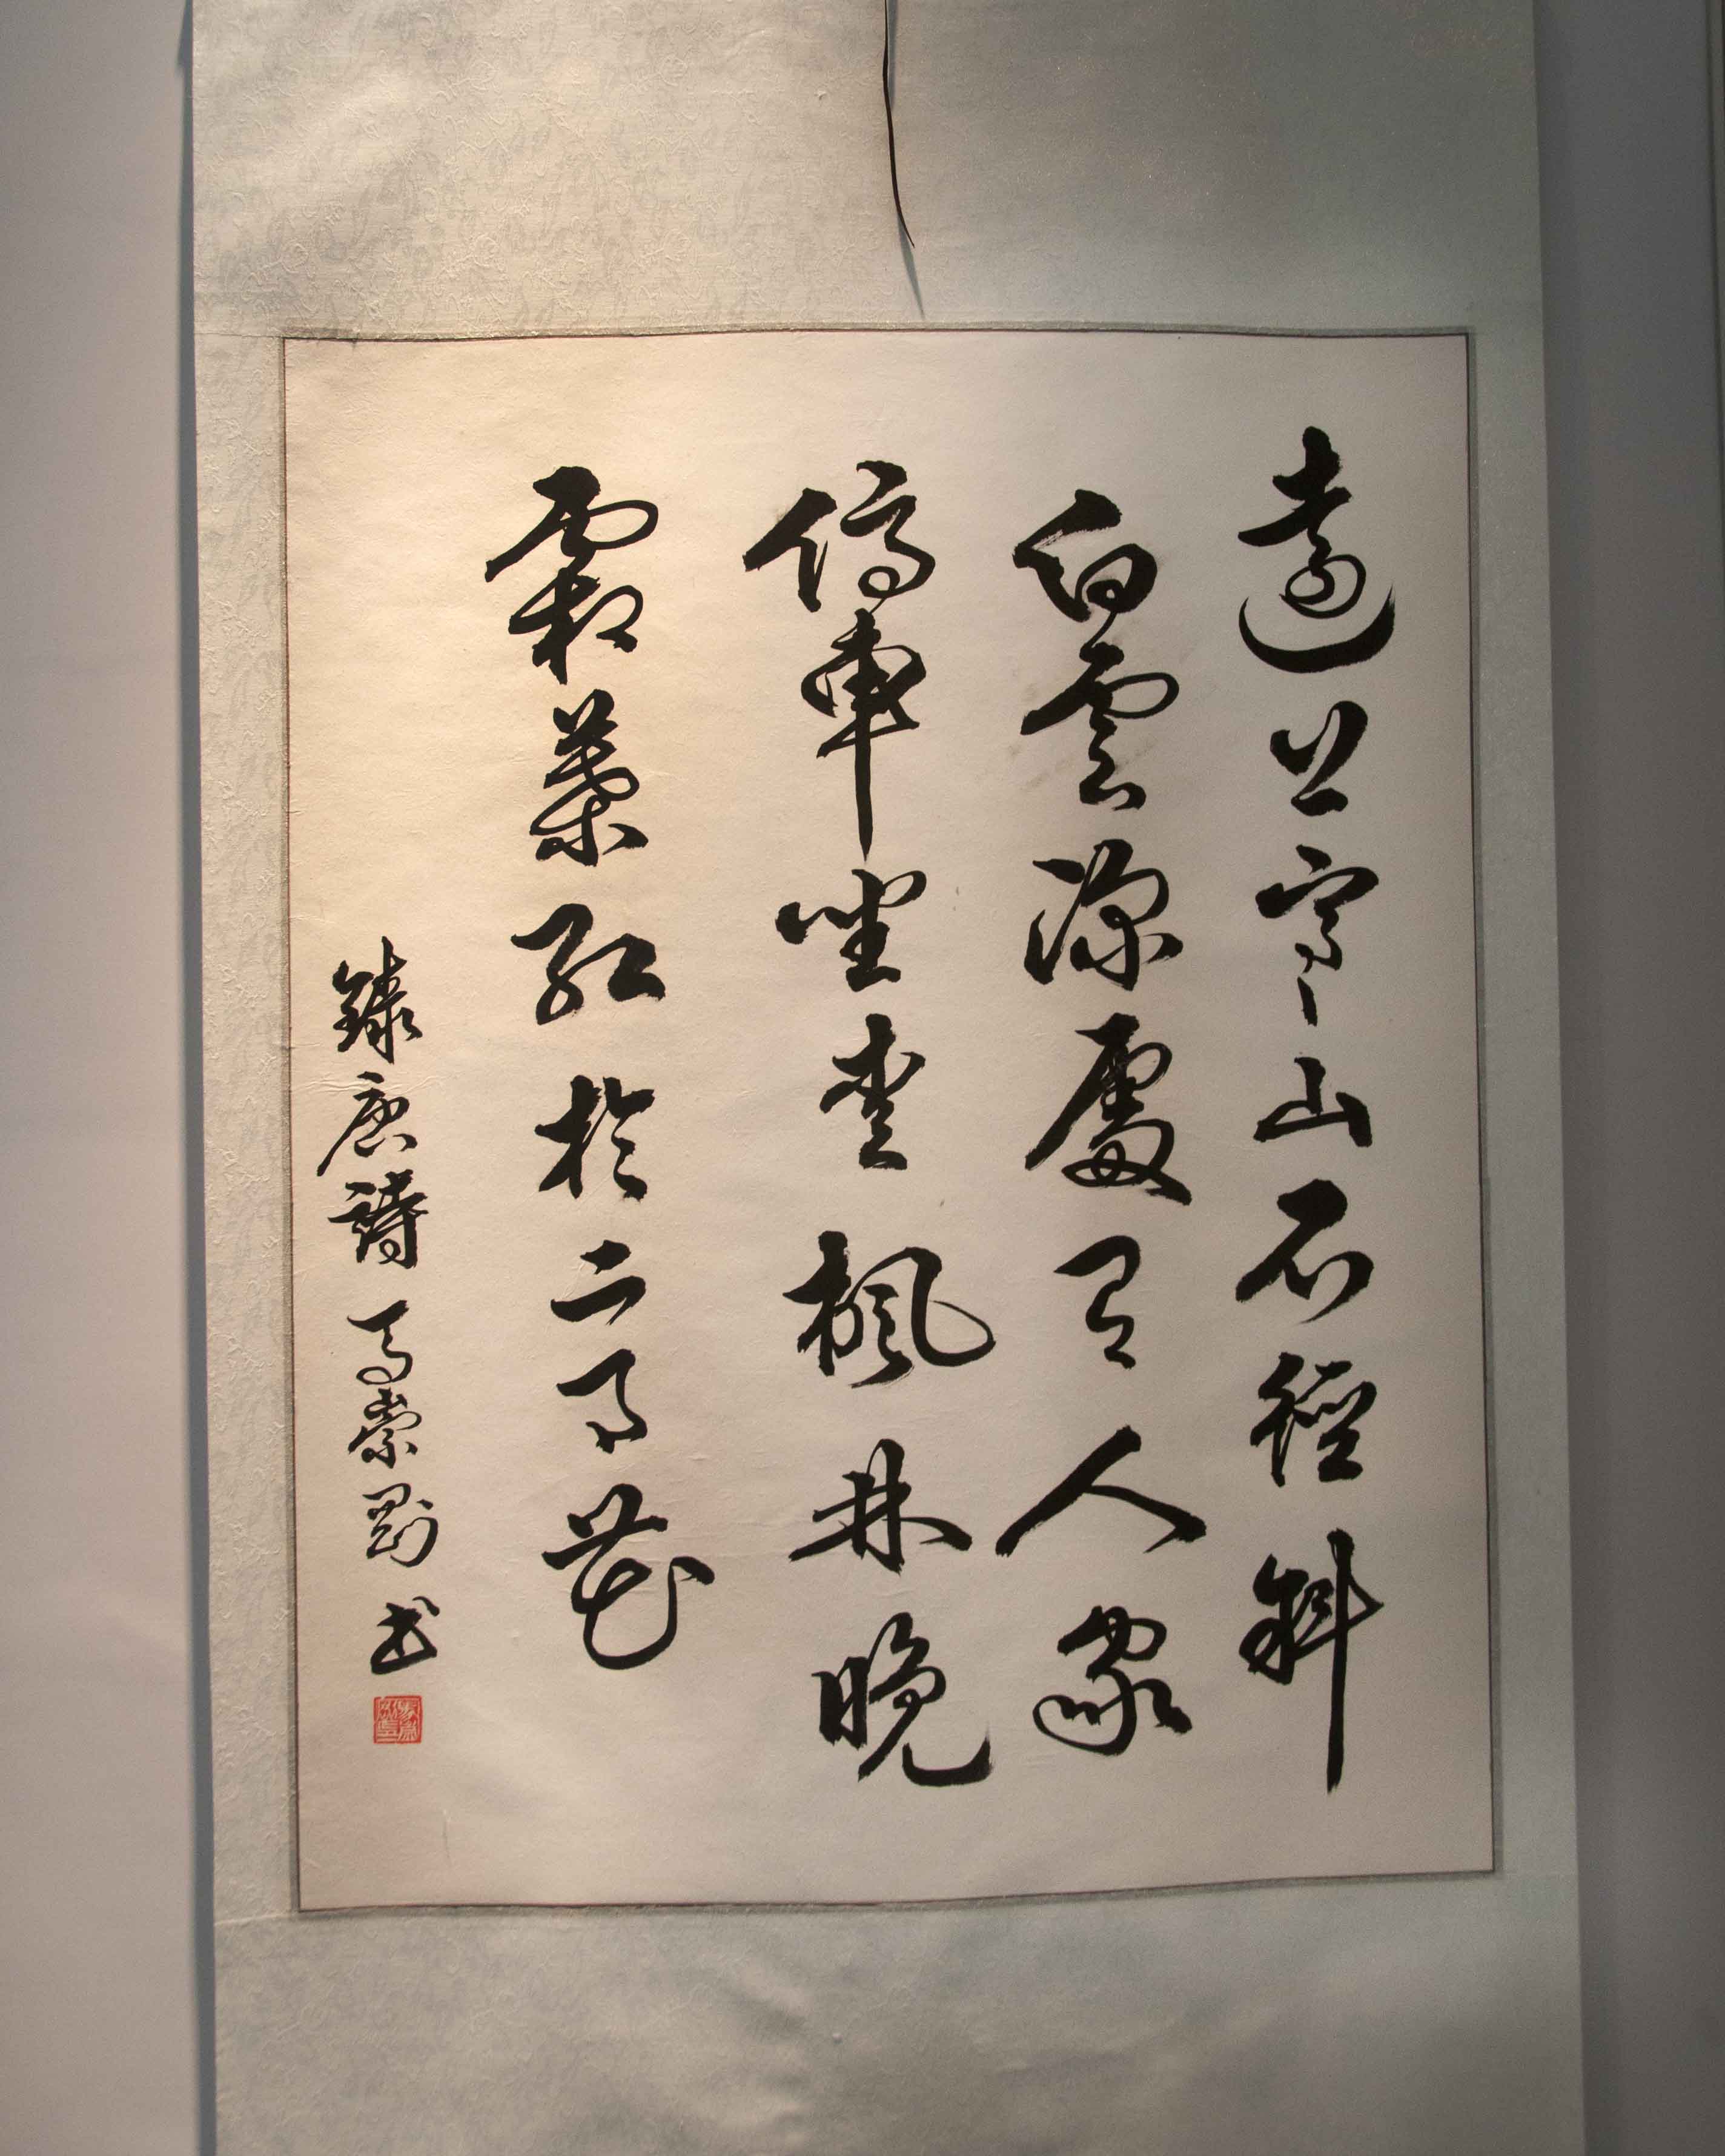 遠上寒山石徑斜
白雲深處有人家
停車坐愛楓林晚
霜葉紅於二月花
錄唐詩 崇剛书